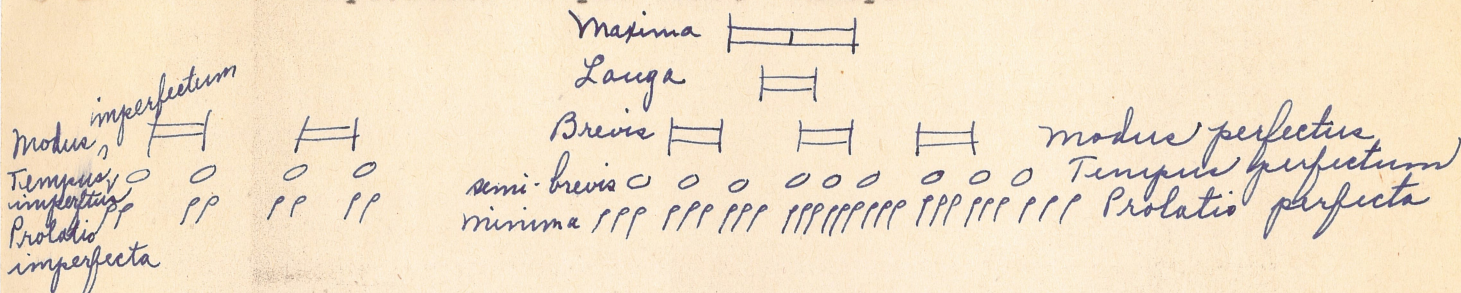 Maxima
Longa
Modus, imperfectum
Brevis
modus perfectus
Tempus,
imperftus
semi-brevis
Tempus perfectum
Prolatio
imperfecta
minima
Prolatio perfecta